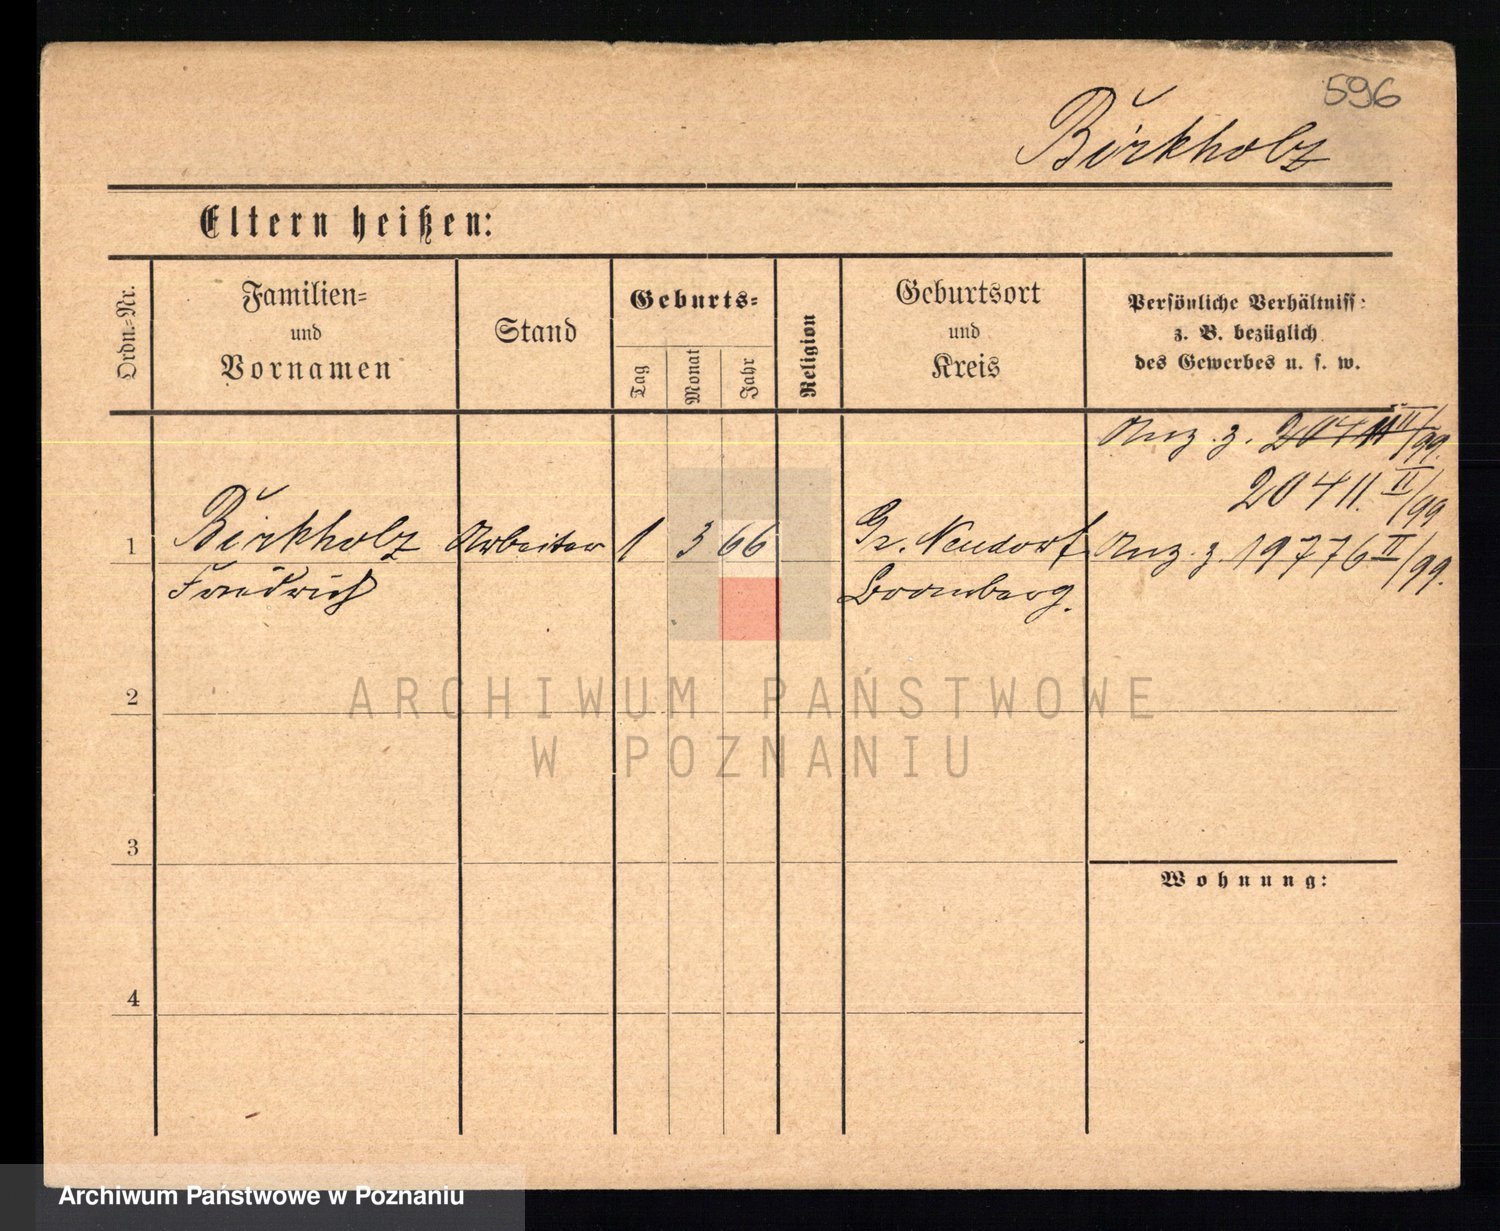 596
Birkholz
Eltern heißen:
Ordn.-Nr.
Familien-
und
Vornamen
Stand
Geburts-
Tag
Monat
Jahr
Religion
Geburtsort
und
Kreis
Persönliche Verhältniss:
z. B. bezüglich
des Gewerbes u. s. w.
Anz. z. 20411 II/99.
20411. II/99
1 Birkholz Arbeiter 1 3 66 Gr. Neudorf Anz. z. 19776 II/99.
Friedrich Bromberg.
2
ARCHIWUM PAŃSTWOWE
W POZNANIU
3
Wohnung:
4
Archiwum Państwowe w Poznaniu